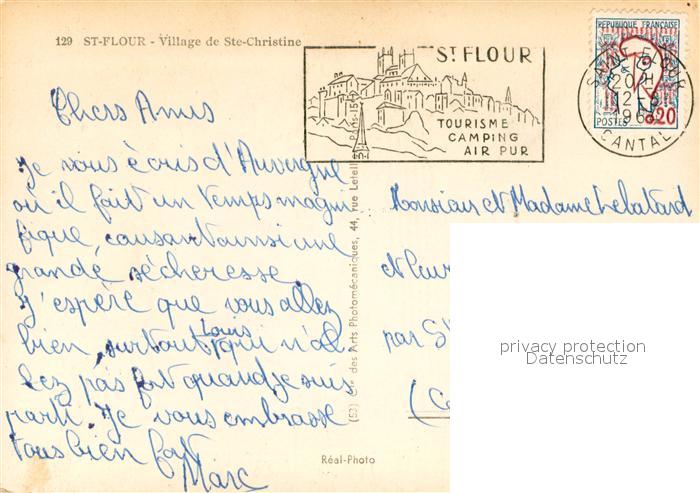 129 ST-FLOUR - Village de Ste-Christine
Chers Amis
Je vous écris d'Auvergne
où il fait un temps magni
fique, causant ainsi une
grande sécheresse
J'espère que vous allez
bien, surtout Louis qui n'al-
lez pas fort quand je suis
parti. Je vous embrasse
tous bien fort
Marc
ST FLOUR
TOURISME
CAMPING
AIR PUR
REPUBLIQUE FRANÇAISE
POSTES 0.20
SAINT FLOUR
20H
12
CANTAL
des Arts Photomécaniques, 44, rue Letel
Monsieur et Madame Lelatard
et leur
par St
(C
privacy protection
Datenschutz
Réal-Photo